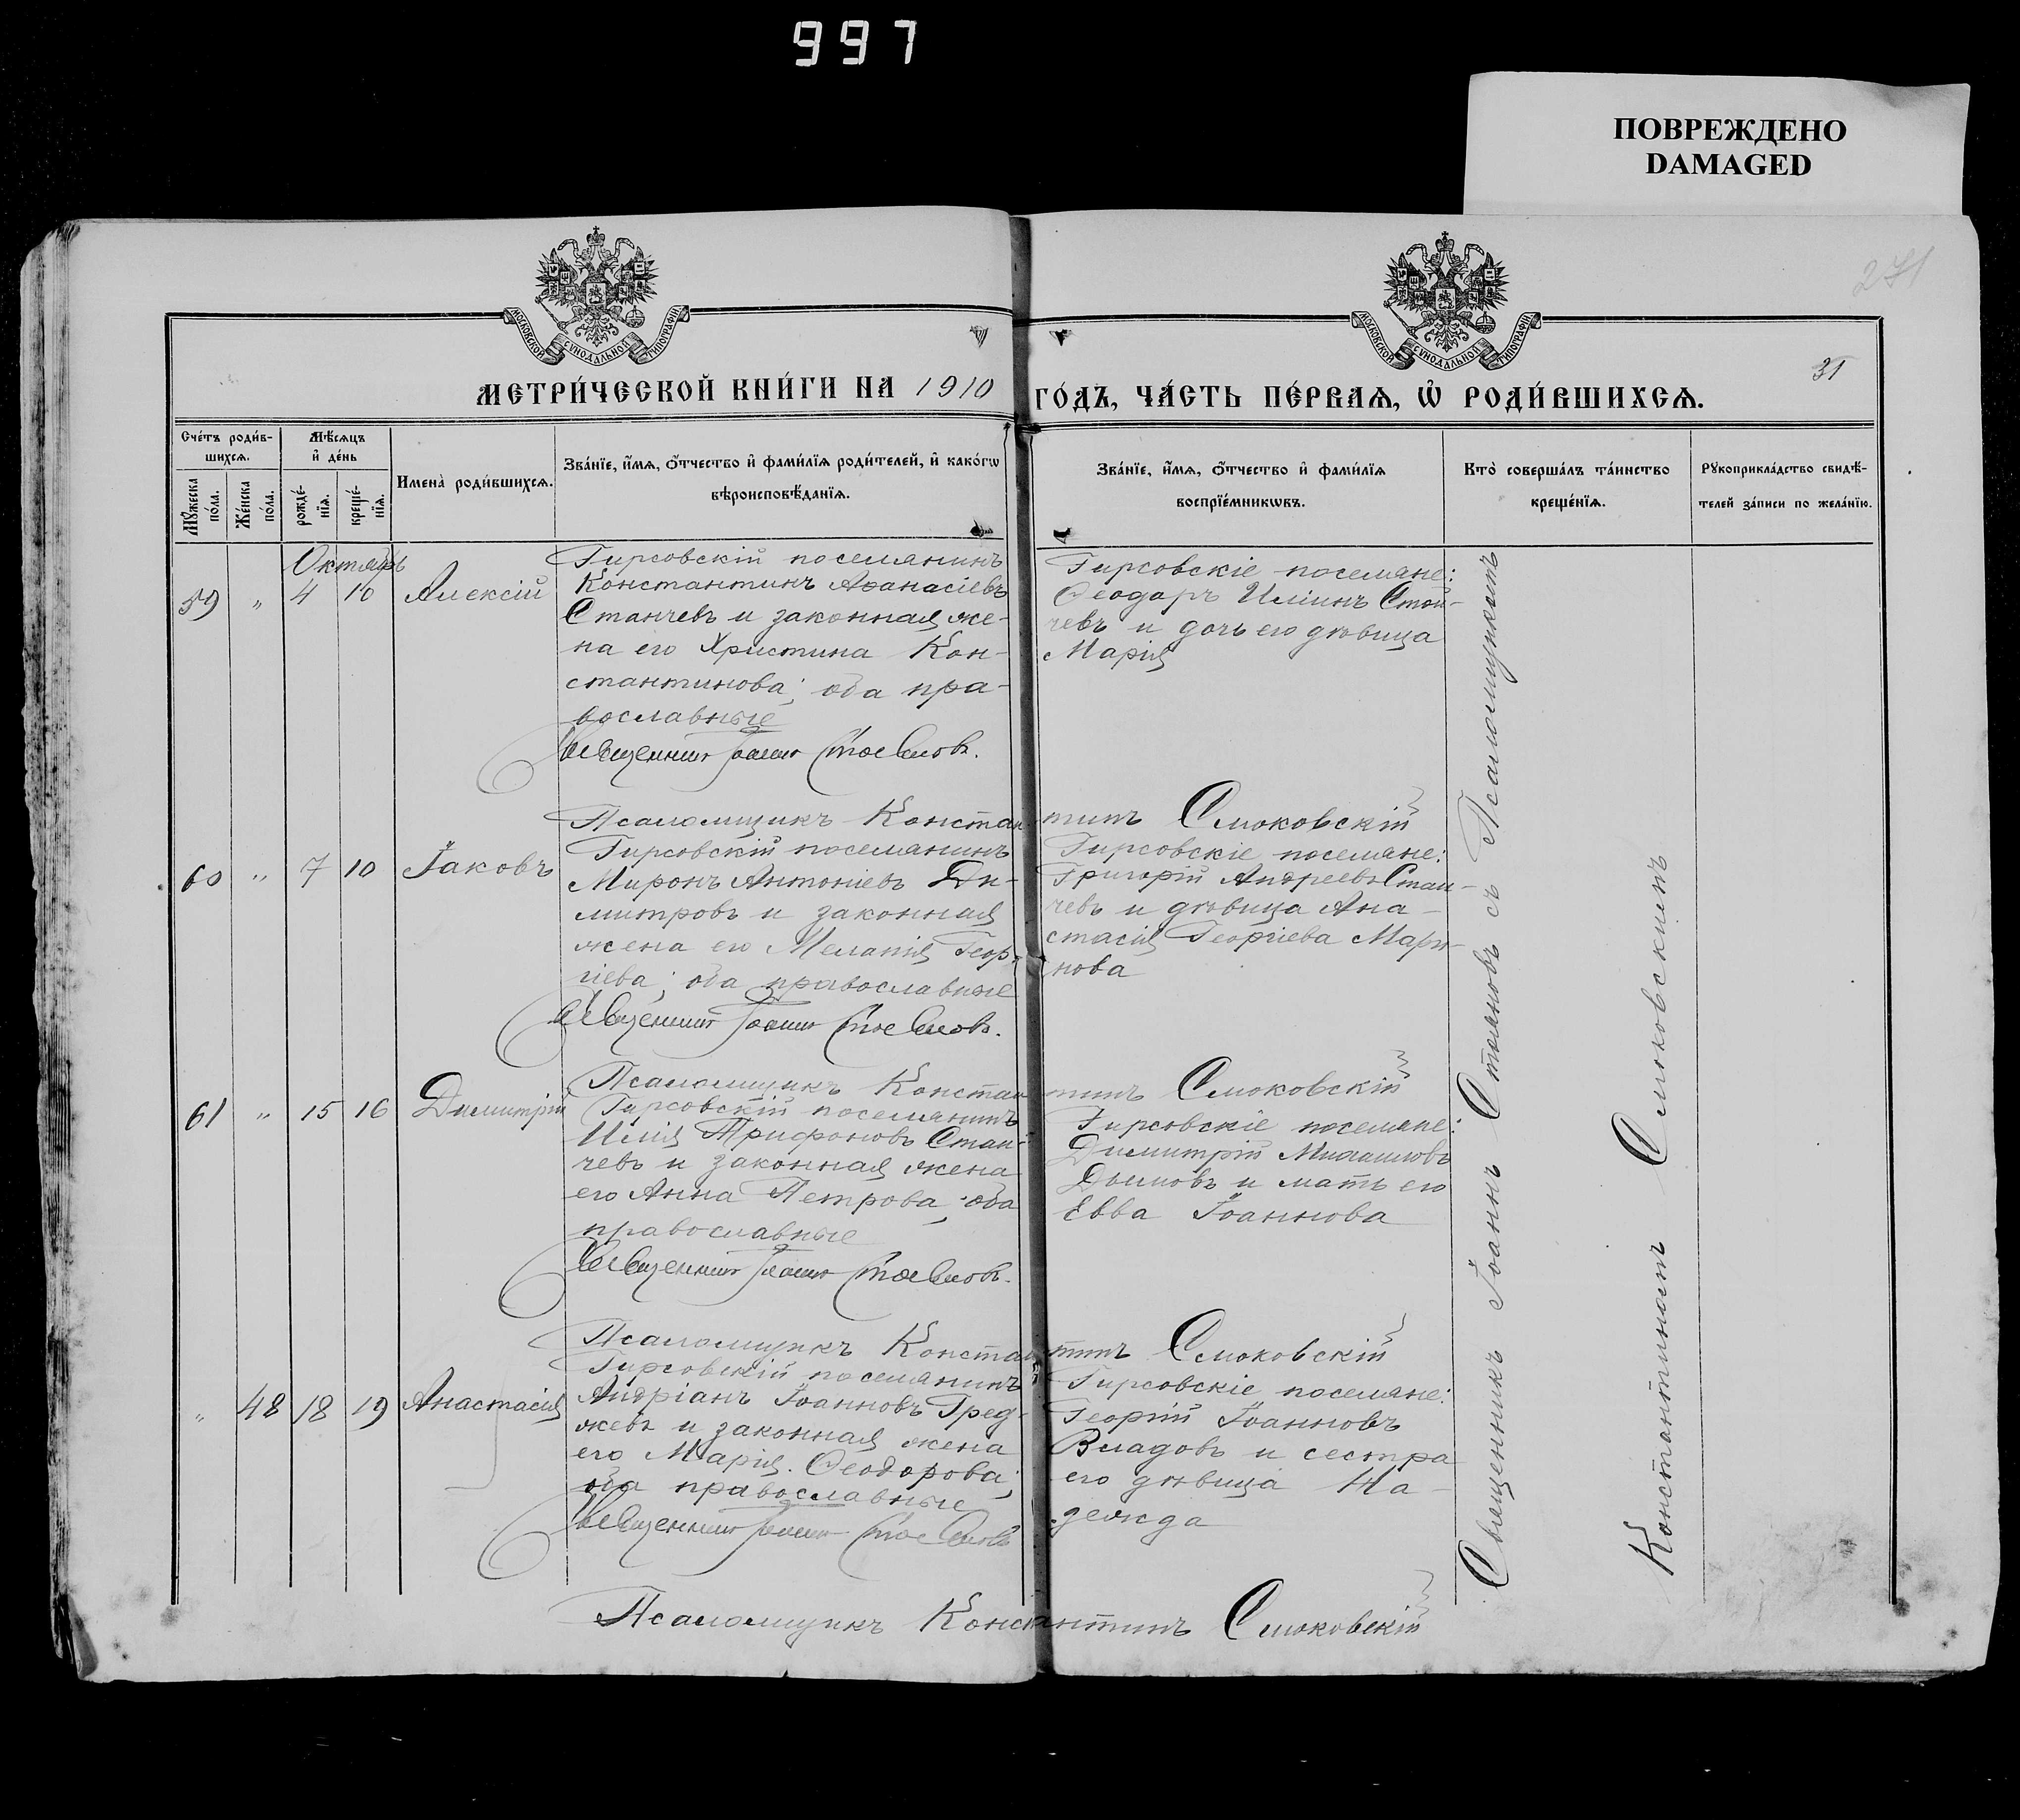 997
ПОВРЕЖДЕНО
DAMAGED
271
31
МОСКОВСКОЙ СѴНОДАЛЬНОЙ ТИПОГРАФІИ
МОСКОВСКОЙ СѴНОДАЛЬНОЙ ТИПОГРАФІИ
МЕТРИ́ЧЕСКОЙ КНИ́ГИ НА 1910 ГО́ДЪ, ЧА́СТЬ ПЕ́РВАѦ, Ѡ҆ РОДИ́ВШИХСѦ.
Сче́тъ роди́в-
шихсѧ.
Мѣ́сѧцъ
и҆ де́нь
Мꙋ́жеска по́ла.
Же́нска по́ла.
рожде́-
нїѧ.
креще́-
нїѧ.
Имена̀ роди́вшихсѧ.
Зва́нїе, и҆́мѧ, ѻ҆́тчество и҆ фами́лїѧ роди́телей, и҆ како́гѡ
вѣроисповѣ́данїѧ.
Зва́нїе, и҆́мѧ, ѻ҆́тчество и҆ фами́лїѧ
воспрїе́мникѡвъ.
Кто̀ соверша́лъ та́инство
креще́нїѧ.
Рꙋкоприкла́дство свидѣ́-
телей за́писи по жела́нїю.
Октябрь
59 " 4 10 Алексій
Гирсовскій поселянинъ
Константинъ Аѳанасіевъ
Станчевъ и законная же-
на его Христина Кон-
стантинова; оба пра-
вославные
Священникъ Іоаннъ Стояновъ.
Гирсовскіе поселяне:
Ѳеодоръ Иліинъ Стой-
чевъ и дочь его дѣвица
Марія
Псаломщикъ Константинъ Смоковскій
60 " 7 10 Іаковъ
Гирсовскій поселянинъ
Миронъ Антоніевъ Ди-
митровъ и законная
жена его Меланія Геор-
гіева; оба православные
Священникъ Іоаннъ Стояновъ.
Гирсовскіе поселяне:
Григорій Андреевъ Стан-
чевъ и дѣвица Ана-
стасія Георгіева Мари-
нова
Псаломщикъ Константинъ Смоковскій
61 " 15 16 Димитрій
Гирсовскій поселянинъ
Илія Трифоновъ Стан-
чевъ и законная жена
его Анна Петрова; оба
православные
Священникъ Іоаннъ Стояновъ.
Гирсовскіе поселяне:
Димитрій Михаиловъ
Дымовъ и мать его
Евва Іоаннова
Псаломщикъ Константинъ Смоковскій
" 48 18 19 Анастасія
Гирсовскій поселянинъ
Андріанъ Іоанновъ Гред-
жевъ и законная жена
его Марія Ѳеодорова;
оба православные
Священникъ Іоаннъ Стояновъ
Гирсовскіе поселяне:
Георгій Іоанновъ
Владовъ и сестра
его дѣвица На-
дежда
Псаломщикъ Константинъ Смоковскій
Священникъ Іоаннъ Стояновъ съ Псаломщикомъ
Константиномъ Смоковскимъ